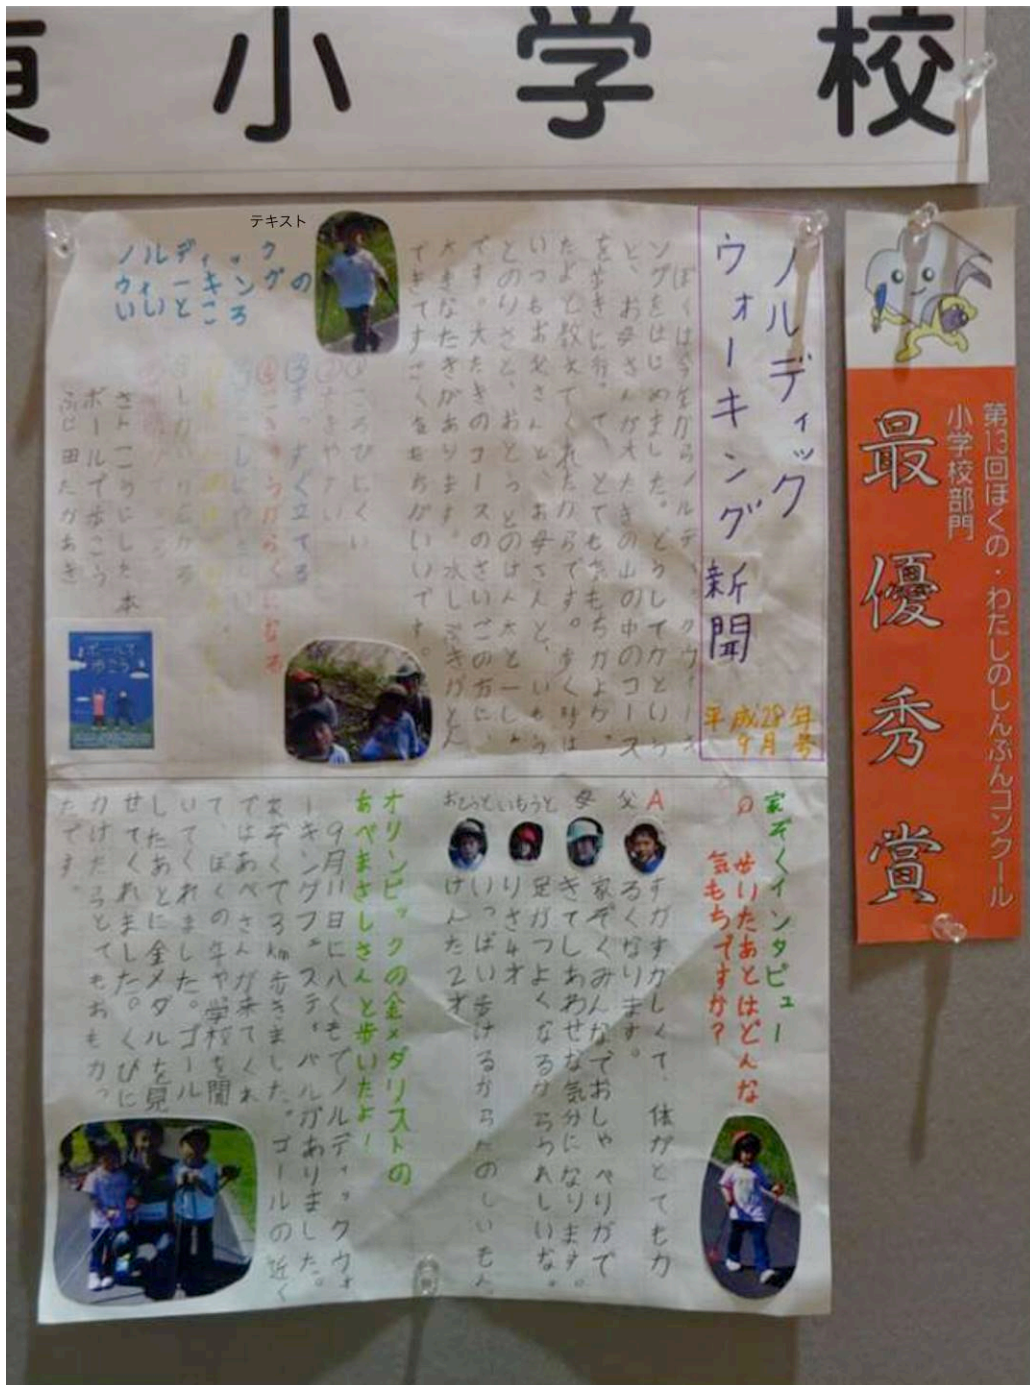 小学校
テキスト
第13回ぼくの・わたしのしんぶんコンクール
小学校部門
最優秀賞
ノルディック
ウォーキング新聞
平成28年
9月号
ぼくは今年からノルディックウォーキ
ングをはじめました。どうしてかという
と、お母さんが大たきの山の中のコース
を歩きに行って、とても気もちがよかっ
たよと教えてくれたからです。歩く時は
いつもお父さんと、お母さんと、いもう
とのりさと、おとうとのけん太と一しょ
です。大たきのコースのさいごの方に、
大きなたきがあります。水しぶきがとん
できてすごくきもちがいいです。
ノルディック
ウォーキングの
いいところ
ころびにくい
まっすぐ立てる
さんこうにした本
ポールで歩こう
ふじ田たかあき
ポールで
歩こう
家ぞくインタビュー
Q 歩いたあとはどんな
気もちですか?
A
父
すがすがしくて、体がとてもか
るくなります。
母
家ぞくみんなでおしゃべりがで
きてしあわせな気分になります。
いもうと
足がつよくなるからうれしいな。
りさ4才
おとうと
いっぱい歩けるからたのしいもん。
けんた2才
オリンピックの金メダリストの
あべまさしさんと歩いたよ!
9月11日に八くもでノルディックウォ
ーキングフェスティバルがありました。
家ぞくで3km歩きました。ゴールの近く
ではあべさんが来てくれ
て、ぼくの年や学校を聞
いてくれました。ゴール
したあとに金メダルを見
せてくれました。くびに
かけたらとてもおもかっ
たです。